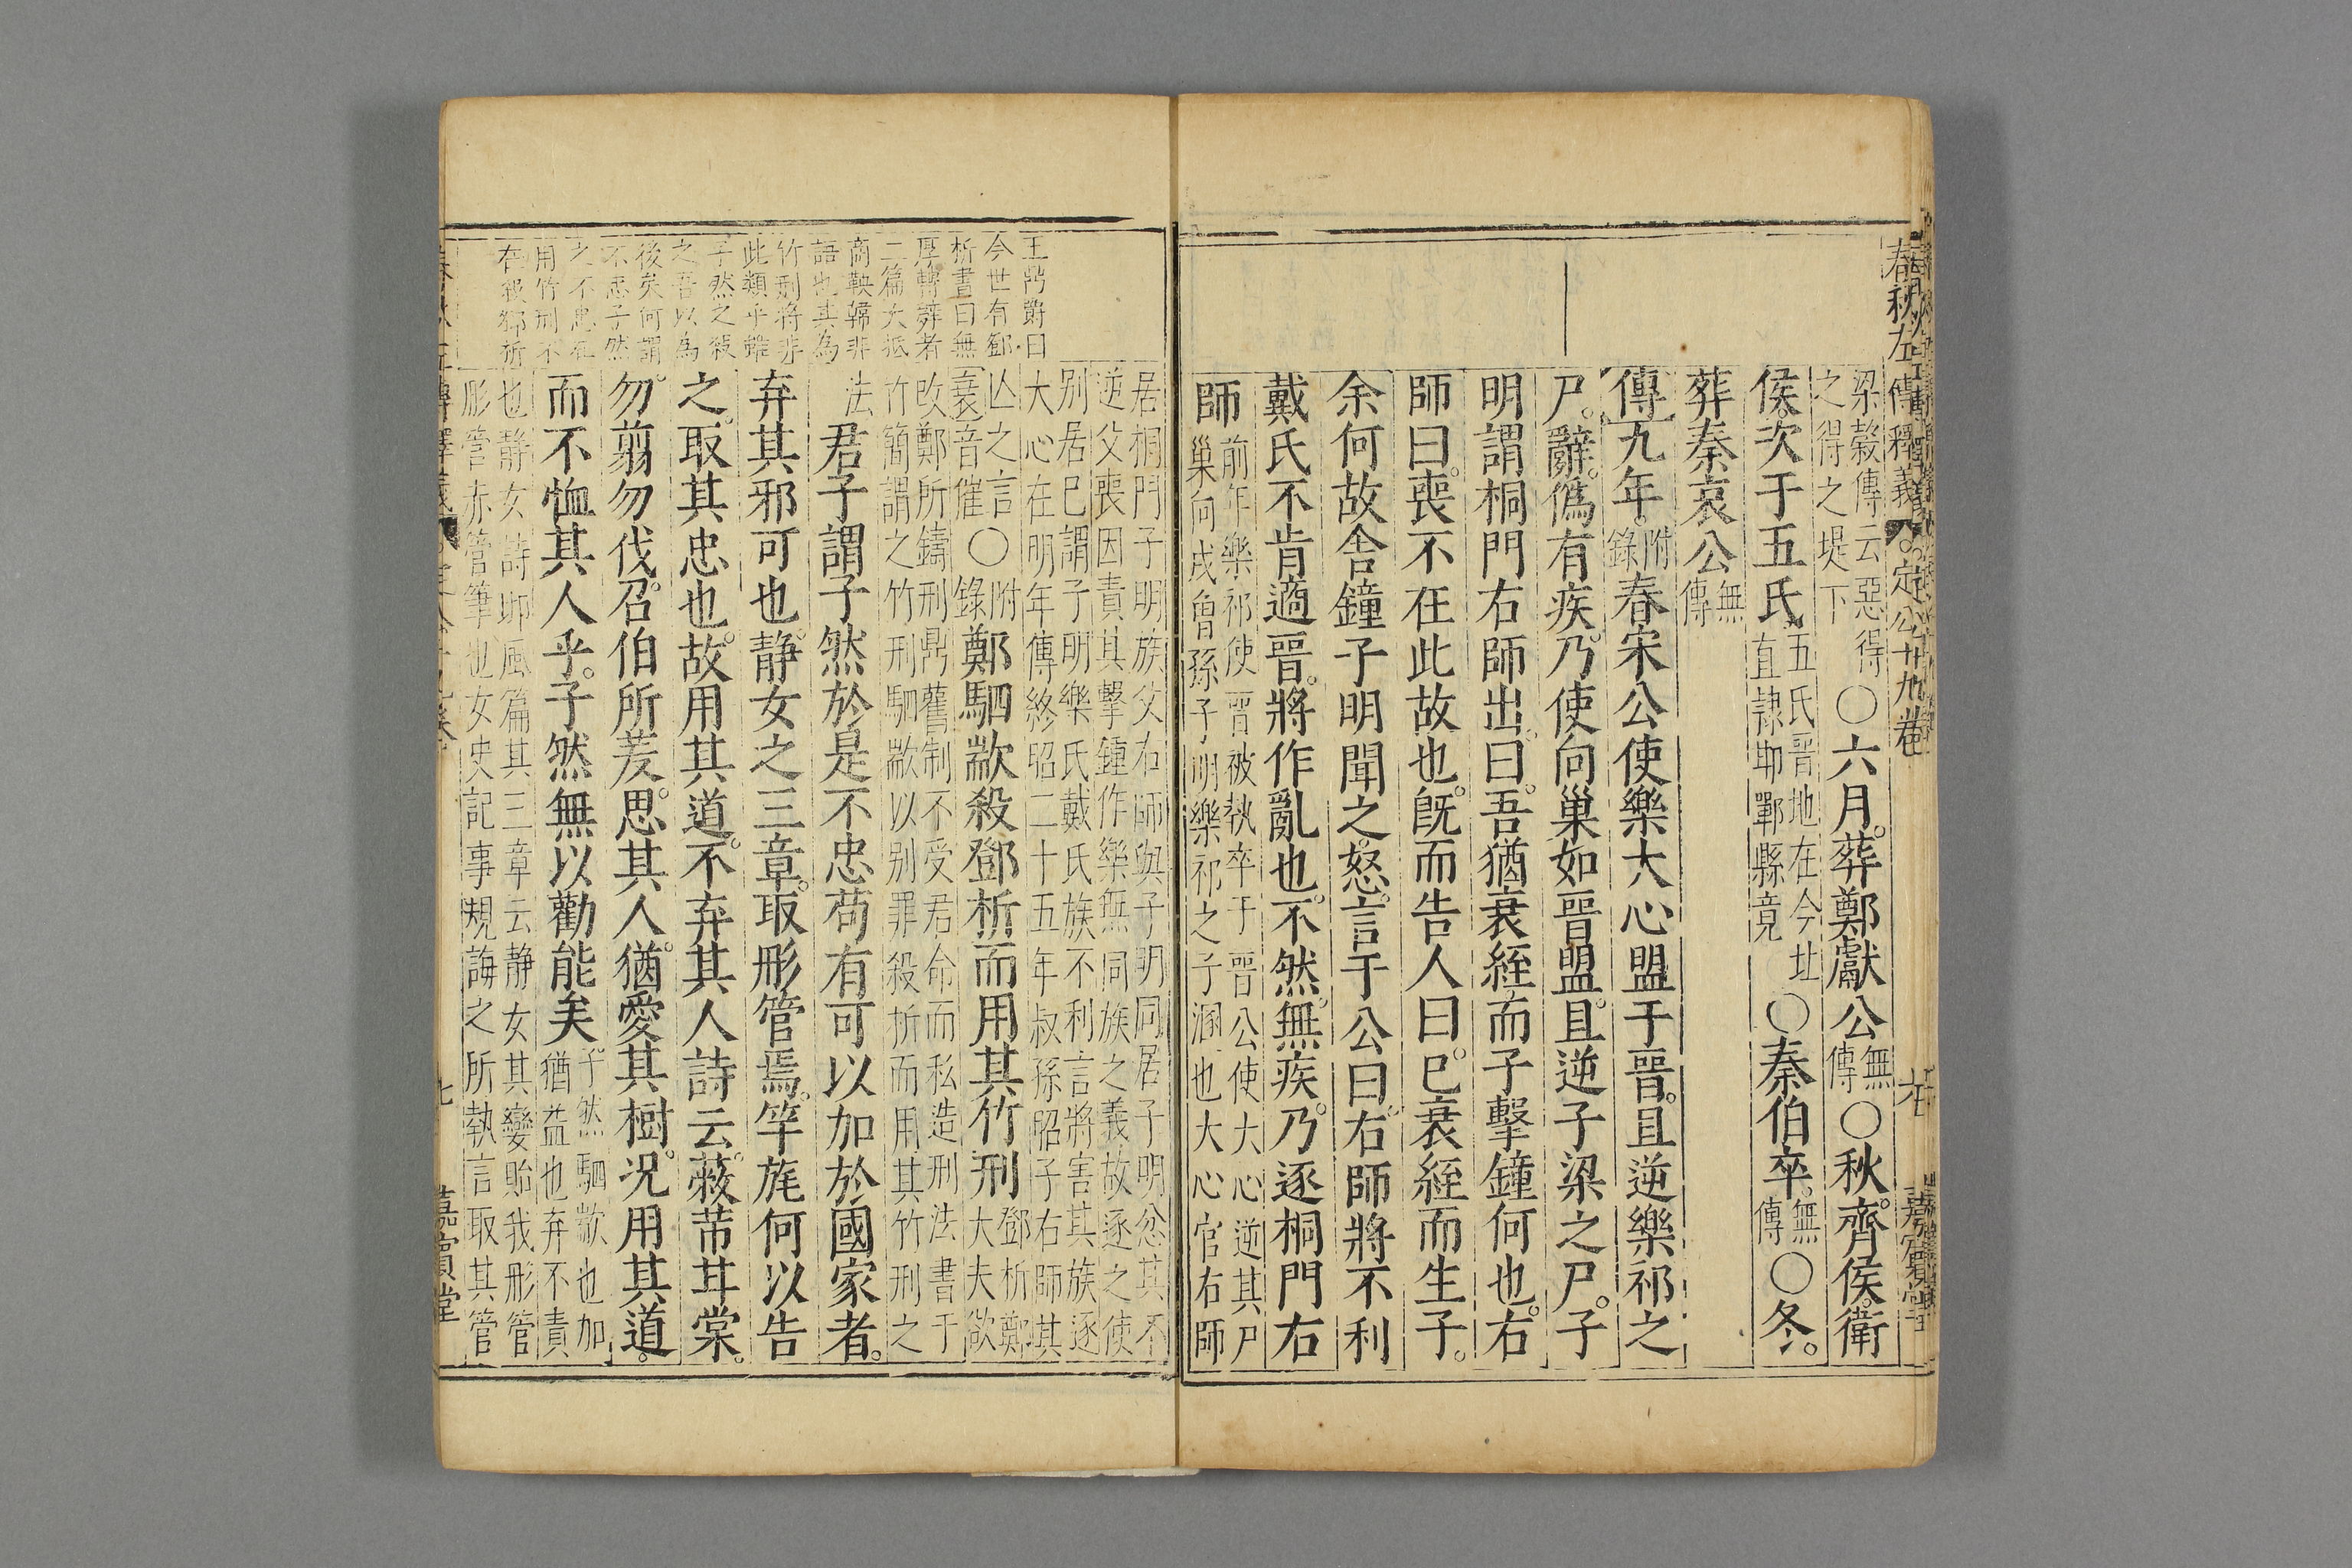 春秋左傳釋義 定公 十九卷
梁穀傳云惡得
之得之堤下
○六月。葬鄭獻公無傳○秋。齊侯。衛
侯。次于五氏五氏晉地在今北
直隸邯鄲縣竟
○秦伯卒。無傳○冬。
葬秦哀公無傳
傳九年。附錄春宋公使樂大心盟于晉。且逆樂祁之
尸。辭。僞有疾。乃使向巢如晉盟。且逆子梁之尸。子
明謂桐門右師出。曰。吾猶衰絰。而子擊鐘何也。右
師曰。喪不在此故也。旣而告人曰。已衰絰而生子。
余何故舍鐘子明聞之。怒。言于公曰。右師將不利
戴氏不肯適晉。將作亂也。不然。無疾。乃逐桐門右
師前年樂祁使晉被執卒于晉公使大心逆其尸
巢向戌曾孫子明樂祁之子溷也大心官右師
居桐門子明族父右師與子明同居子明忿其不
逆父喪因責其擊鍾作樂無同族之義故逐之使
別居已謂子明樂氏戴氏族不利言將害其族逐
大心在明年傳終昭二十五年叔孫昭子右師其
亾之言
衰音催
○附錄鄭駟歂殺鄧析而用其竹刑鄧析鄭
大夫欲
改鄭所鑄刑鼎舊制不受君命而私造刑法書于
竹簡謂之竹刑駟歂以別罪殺折而用其竹刑之
法
君子謂子然於是不忠苟有可以加於國家者。
弃其邪可也。静女之三章。取彤管焉。竿旄何以告
之。取其忠也。故用其道。不弃其人詩云。蔽芾甘棠。
勿。翦勿伐。召伯所茇。思其人。猶愛其樹。况用其道。
而不恤其人乎。子然無以勸能矣子然駟歂也加
猶益也弃不責
也静女詩邶風篇其三章云静女其孌貽我彤管
彤管赤管筆也女史記事規誨之所執言取其管
王鼎爵曰
今世有鄧
析書曰無
厚轉辭者
二篇大抵
商鞅韓非
語也其為
竹刑將非
此類乎雖
子然之殺
之吾以為
後矣何謂
不忠子然
之不忠在
用竹刑不
在殺鄧析
嘉賓堂